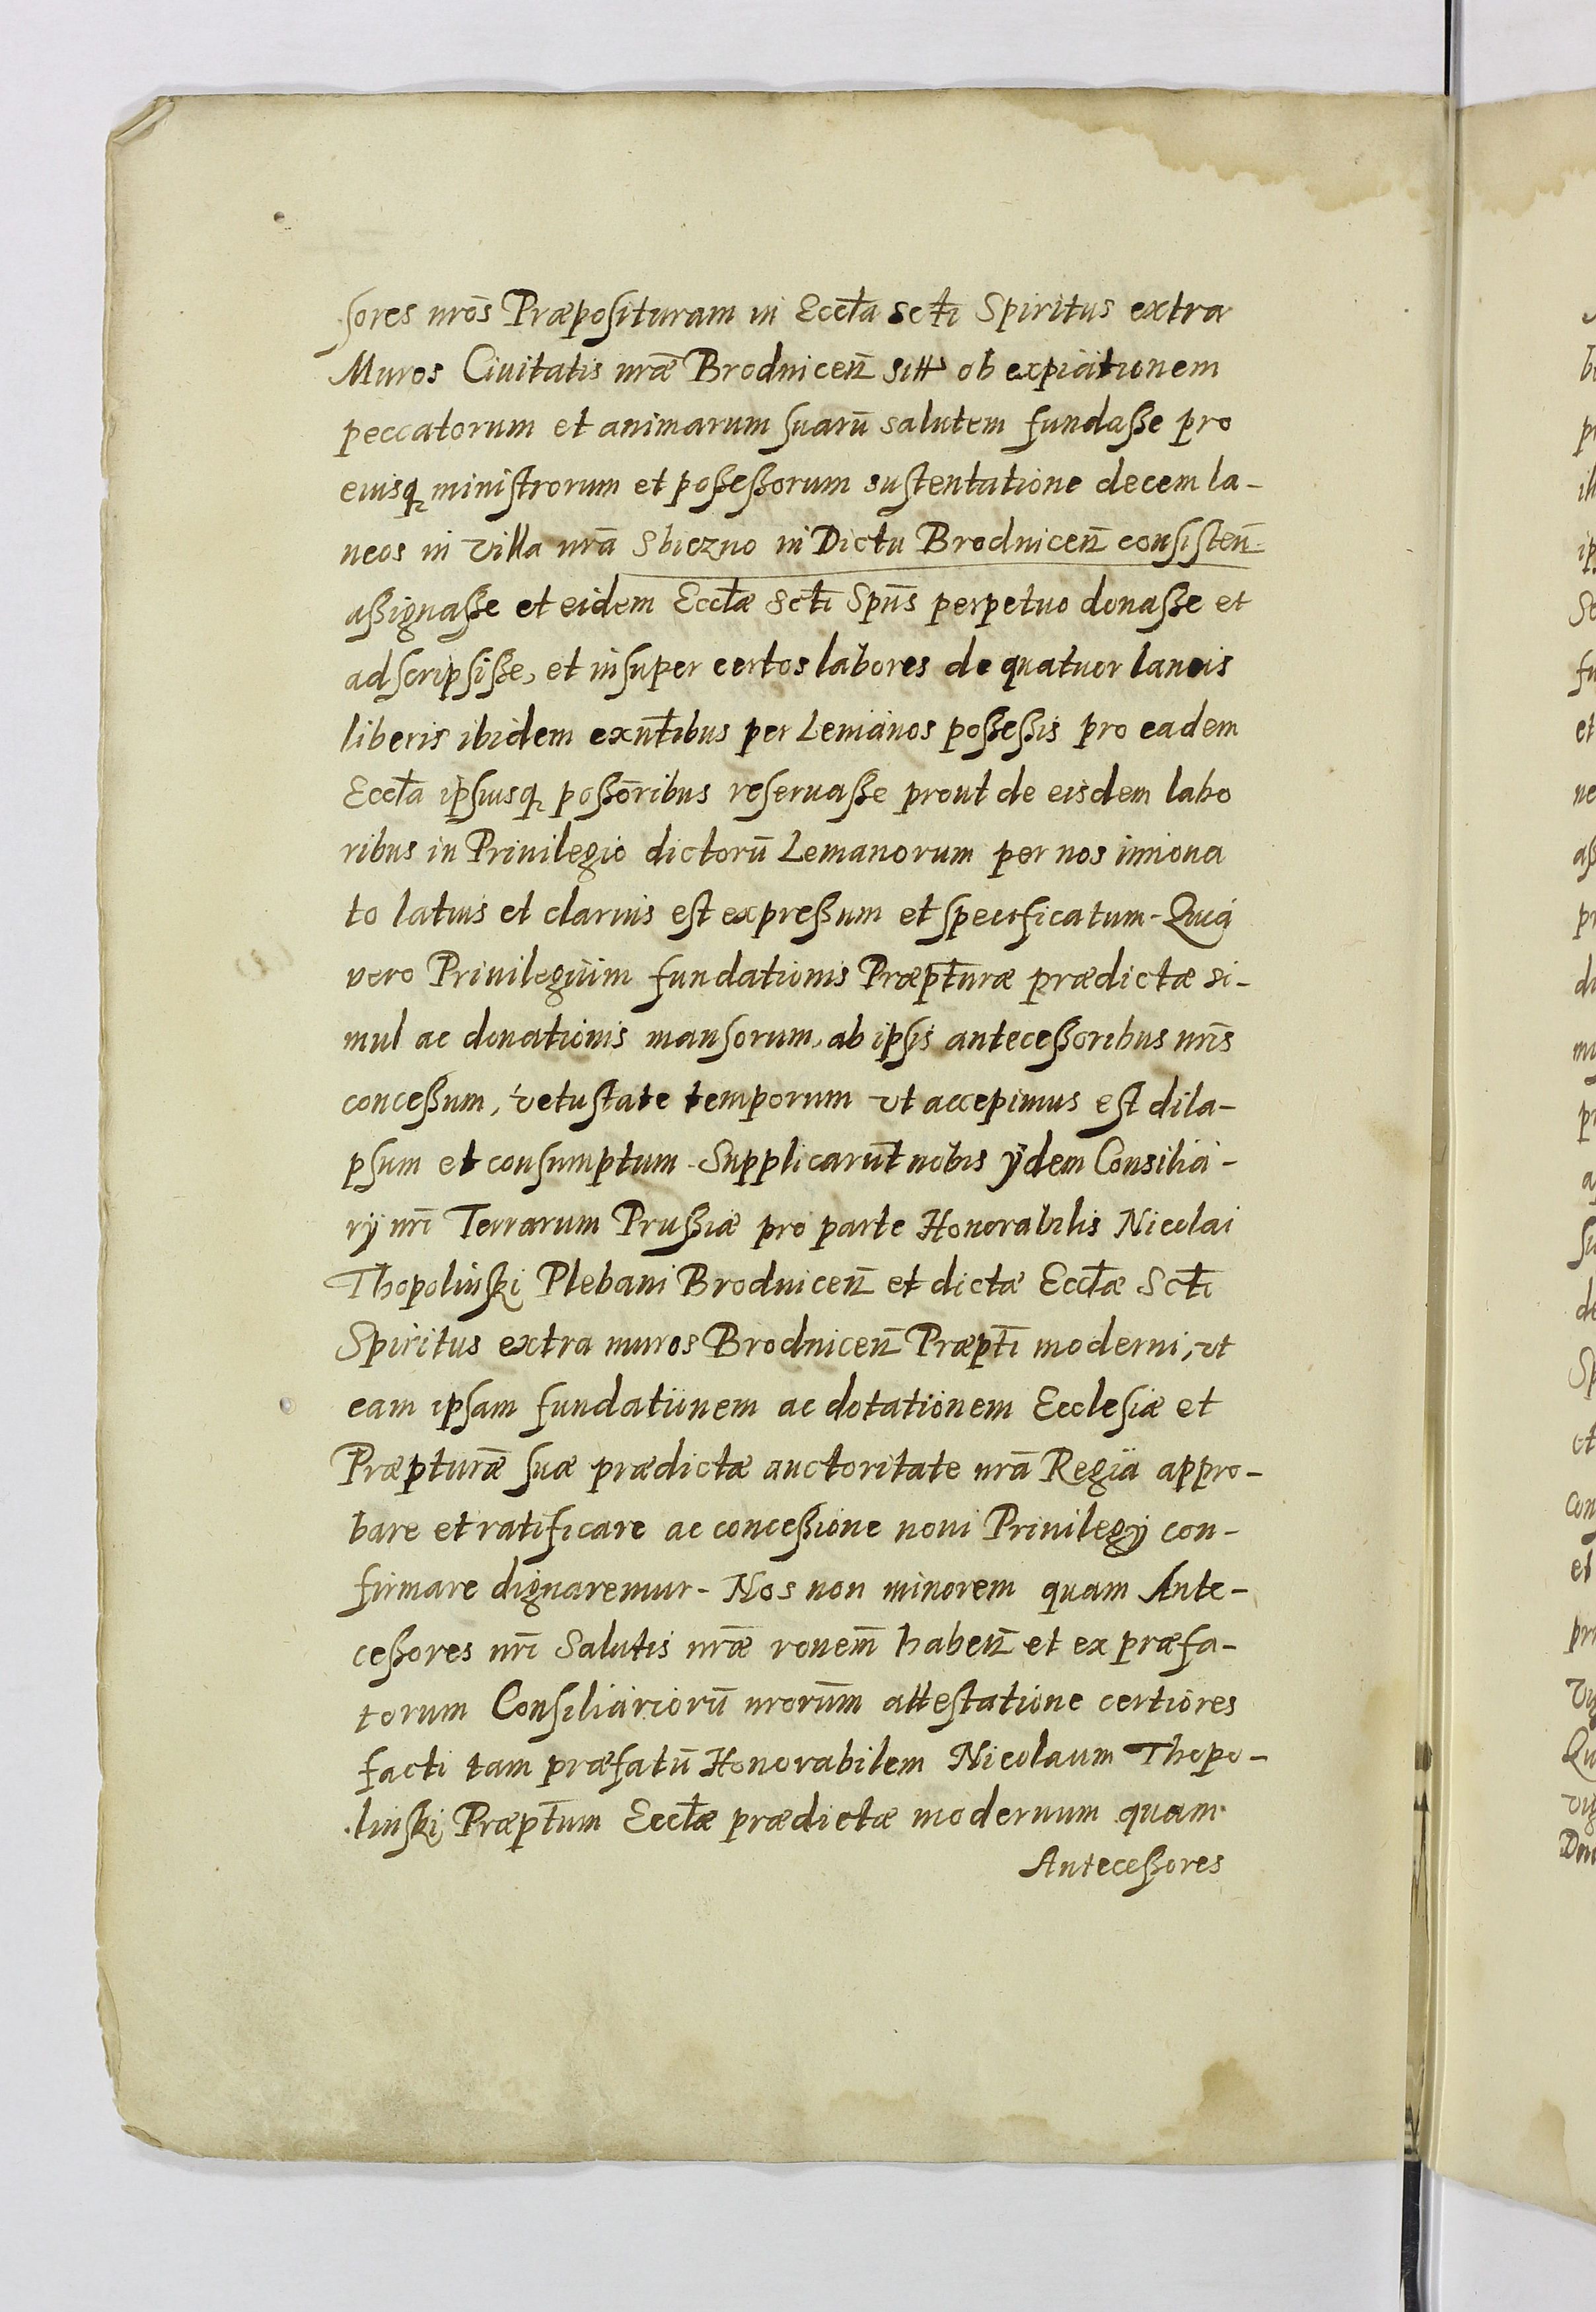 sores nr̄os Præposituram in Eccl̄a sct̄i Spiritus extra
Muros Ciuitatis nr̄æ Brodnicen̄ sitt ob expiationem
peccatorum et animarum suarū salutem fundaße pro
eiusq ministrorum et poßeßorum sustentatione decem la-
neos in villa nr̄a Sbiezno in Dictu Brodnicen̄ consisten̄
aßignaße et eidem Eccl̄æ Sct̄i Spūs perpetuo donaße et
adscripsiße, et insuper certos labores de quatuor laneis
liberis ibidem exnt̄ibus per Lemanos poßeßis pro eadem
Eccl̄a ipsiusq poßōribus reseruaße prout de eisdem labo
ribus in Priuilegio dictorū Lemanorum per nos innoua
to latius et clarius est expreßum et specificatum. Quia
vero Priuilegium fundationis Præpt̄uræ prædictæ si-
mul ac donationis mansorum, ab ipsis anteceßoribus nr̄is
conceßum, vetustate temporum vt accepimus est dila-
psum et consumptum. Supplicarūt nobis ijdem Consilia-
rij nr̄i Terrarum Prußiæ pro parte Honorabilis Nicolai
Thopolinski Plebani Brodnicen̄ et dictæ Eccl̄æ Sct̄i
Spiritus extra muros Brodnicen̄ Præpt̄i moderni, vt
eam ipsam fundationem ac dotationem Ecclesiæ et
Præptur̄æ suæ prædictæ auctoritate nr̄a Regia appro-
bare et ratificare ac conceßione noui Priuilegij con-
firmare dignaremur. Nos non minorem quam Ante-
ceßores nr̄i Salutis nr̄æ ronem̄ haben̄ et ex præfa-
torum Consiliariorū nrorūm attestatione certiores
facti tam præfatū Honorabilem Nicolaum Thopo-
linski Præpt̄um Eccl̄æ prædictæ modernum quam
Anteceßores